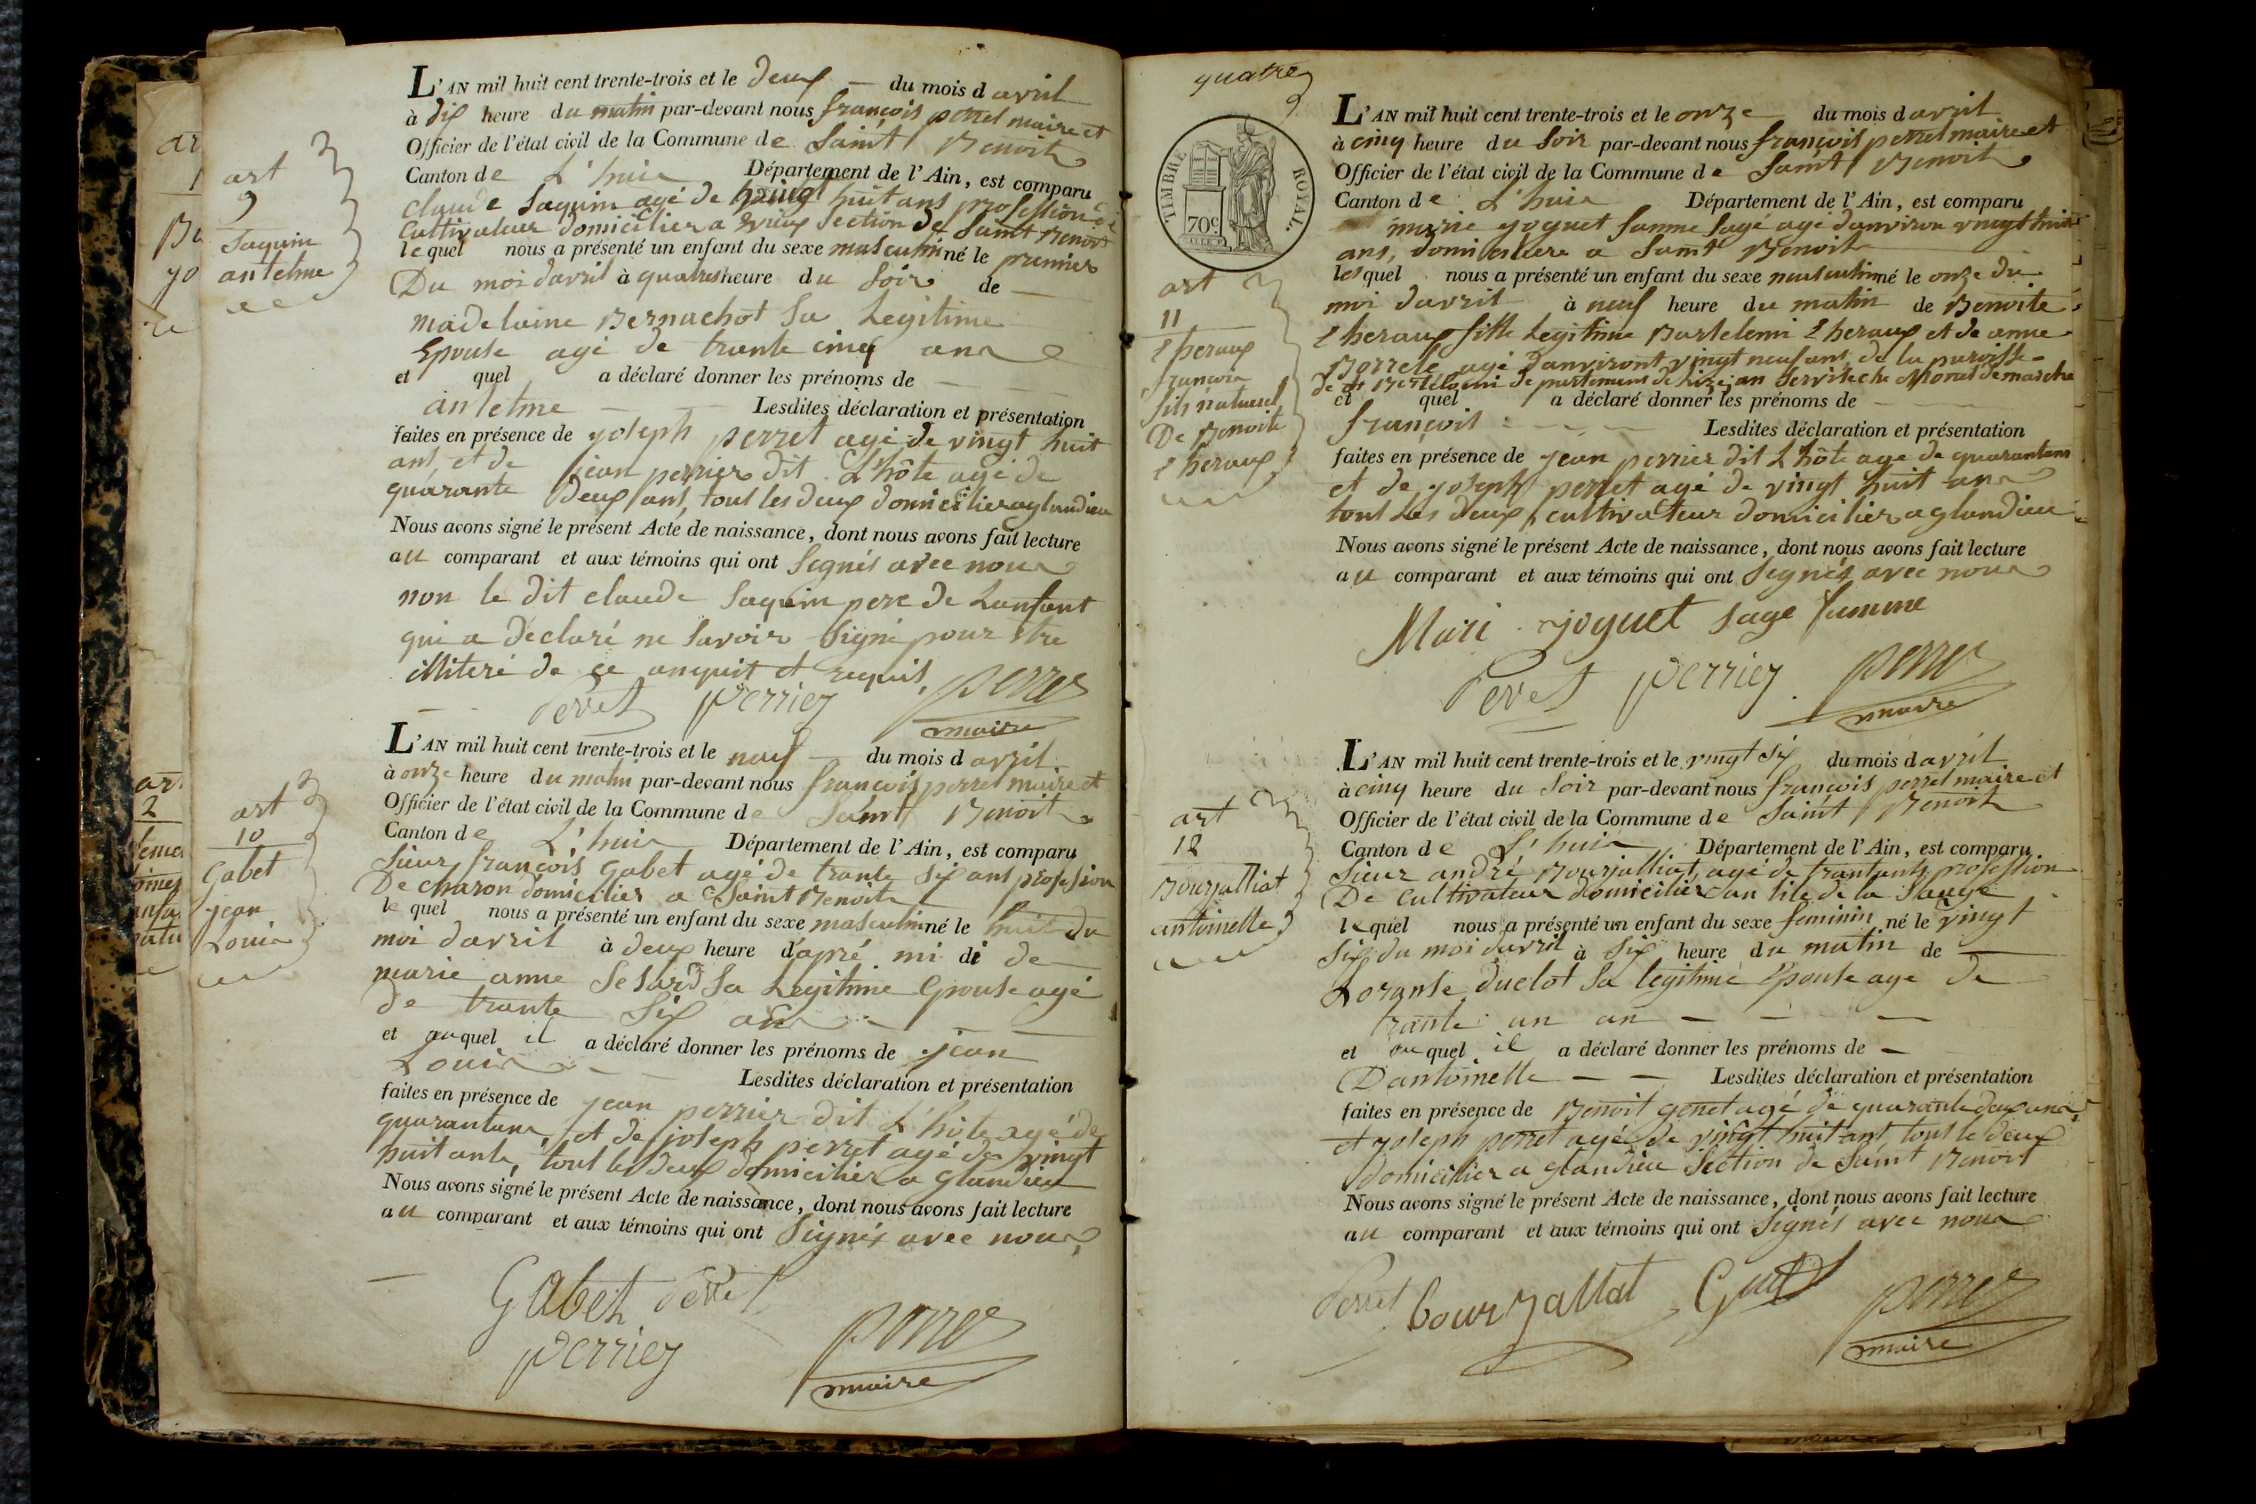 art
9
Saquin
antelme
L'AN mil huit cent trente-trois et le deux du mois d avril
à dix heure du matin par-devant nous françois perret maire et
Officier de l'état civil de la Commune de Saint Benoit
Canton de L'huis Département de l'Ain, est comparu
claude Saquin agé de vingt huit ans profession
Cultivateur domicilier a section de Saint Benoit
lequel nous a présenté un enfant du sexe masculin né le premier
Du moi davril à quatres heure du Soir de
madelaine Bernachot Sa Legitime
Epouse agé de trante cinq ans
et quel a déclaré donner les prénoms de
antelme Lesdites déclaration et présentation
faites en présence de joseph perret agé de vingt huit
ans, et de jean perrier dit L'hôte agé de
quarante deux ans, tout les deux domicilier a glandieu
Nous avons signé le présent Acte de naissance, dont nous avons fait lecture
au comparant et aux témoins qui ont Signés avec nous
non le dit claude Saquin pere de Lanfant
qui a déclaré ne Savoir Signé pour être
illiteré de ce anquit et requis
Perret perrier perret
maire
art
10
Gabet
jean
Louis
L'AN mil huit cent trente-trois et le neuf du mois d avril
à onze heure du matin par-devant nous françois perret maire et
Officier de l'état civil de la Commune de Saint Benoit
Canton de L'huis Département de l'Ain, est comparu
Sieur françois Gabet agé de trante Six ans profession
De charon domicilier a Saint Benoit
le quel nous a présenté un enfant du sexe masculin né le huit du
moi davril à deux heure d'apré mi di de
marie anne Sesard Sa Legitime Epouse agé
de trante Six ans
et auquel il a déclaré donner les prénoms de jean
Louis Lesdites déclaration et présentation
faites en présence de jean perrier dit L'hôte agé de
quarantans, et de joseph perret agé de vingt
huit ants, tout les deux domicilier a glandieu
Nous avons signé le présent Acte de naissance, dont nous avons fait lecture
au comparant et aux témoins qui ont Signés avec nous,
Gabet Perret
perrier perret
maire
quatre
TIMBRE ROYAL.
70c
art
11
Lheraux
francois
fils naturel
De Benoite
Lheraux
L'AN mil huit cent trente-trois et le onze du mois d avril
à cinq heure du Soir par-devant nous françois perret maire et
Officier de l'état civil de la Commune de Saint Benoit
Canton de L'huis Département de l'Ain, est comparu
marie joguet famme Sage agé danviron vingt huit
ans, domiciliere a Saint Benoit
les quel nous a présenté un enfant du sexe masculin né le onze du
moi davril à neuf heure du matin de Benoite
Lheraux fille Legitime Bartelemi Lheraux et de anne
agé danviront vingt neuf ans de la paroisse
et quel a déclaré donner les prénoms de
françois Lesdites déclaration et présentation
faites en présence de jean perrier dit L'hôte agé de quarantans
et de joseph perret agé de vingt huit ans
tout Les deux cultivateur domicilier a glandieu
Nous avons signé le présent Acte de naissance, dont nous avons fait lecture
au comparant et aux témoins qui ont Signés avec nous
Mari joguet sage famme
Perret perrier perret
maire
art
12
Bourjalliat
antoinette
L'AN mil huit cent trente-trois et le vingt Six du mois d avril
à cinq heure du Soir par-devant nous françois perret maire et
Officier de l'état civil de la Commune de Saint Benoit
Canton de L'huis Département de l'Ain, est comparu
Sieur andré Bourjalliat, agé de trantants profession
De Cultivateur domicilier an lile de la Sauge
lequel nous a présenté un enfant du sexe feminin né le vingt
Six du moi davril à Six heure du matin de
Loranse duclot Sa legitime Epouse age de
trante un an
et au quel il a déclaré donner les prénoms de
Dantoinette Lesdites déclaration et présentation
faites en présence de Benoit genet agé de quarante deux ans,
et joseph perret agé de vingt huit ant, tout le deux
domicilier a glandieu Section de Saint Benoit
Nous avons signé le présent Acte de naissance, dont nous avons fait lecture
au comparant et aux témoins qui ont Signés avec nous
Perret bourjallat perret
maire